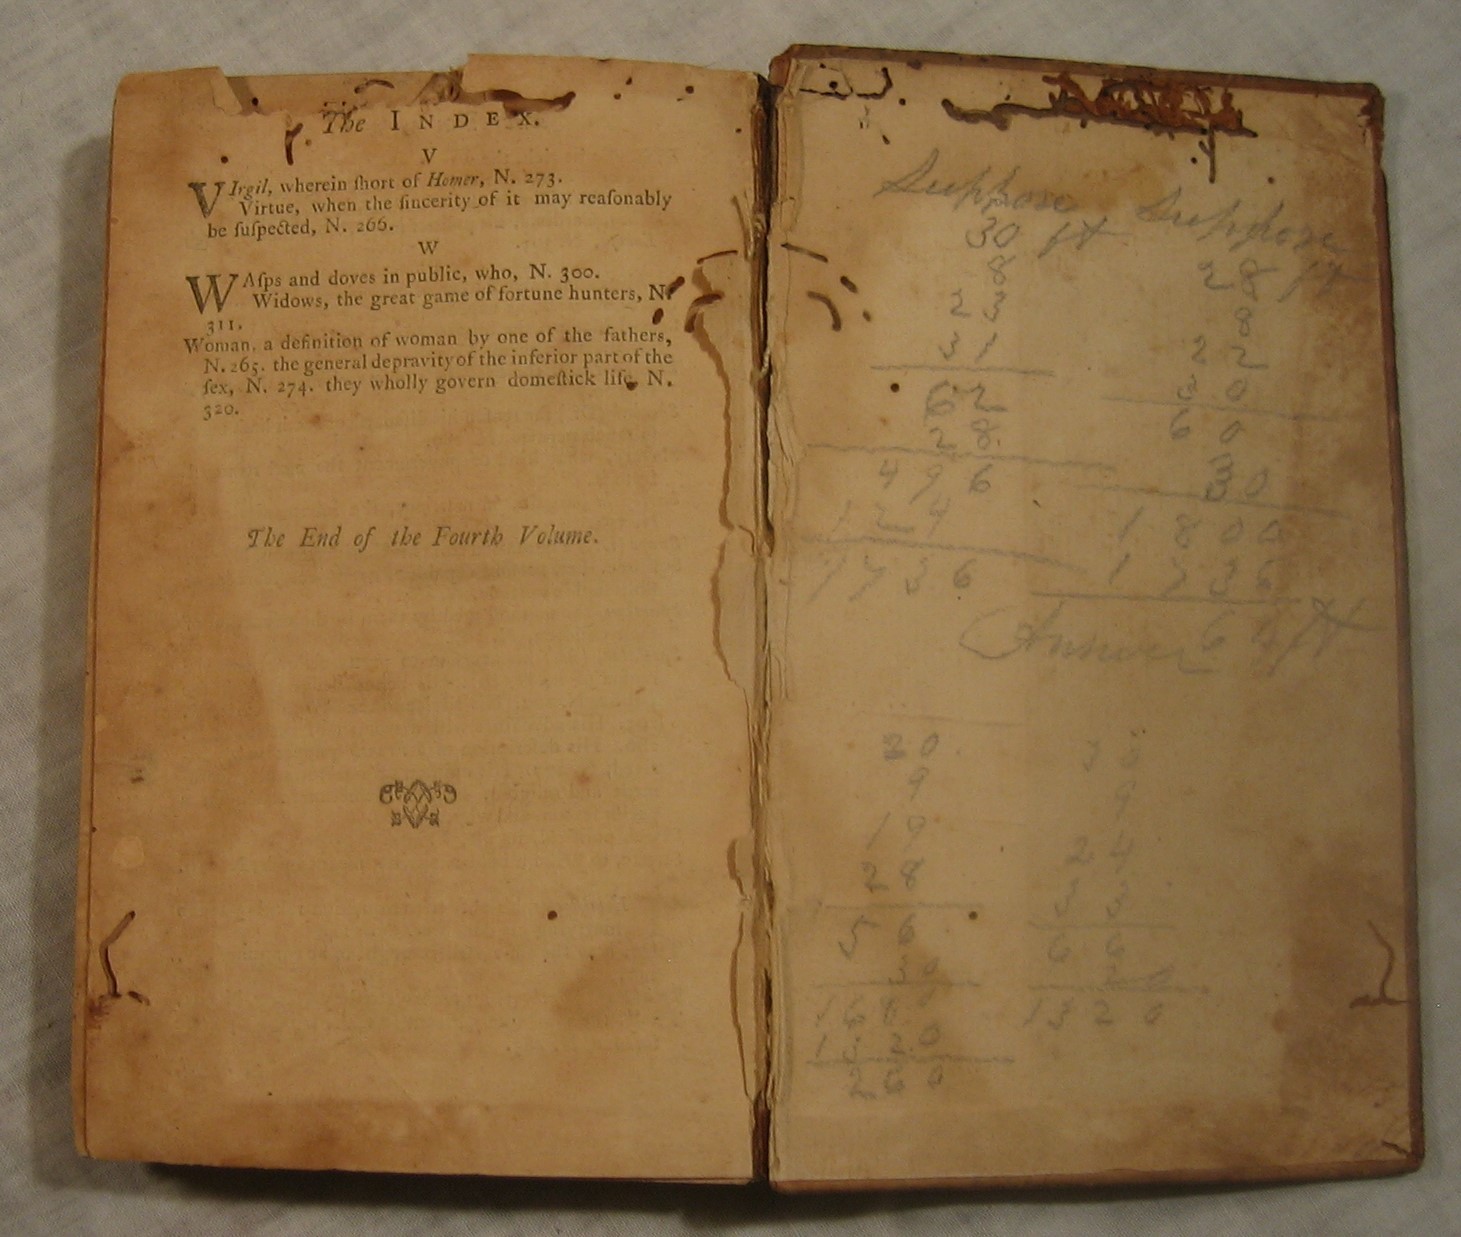 The INDEX.
V
VIrgil, wherein ſhort of Homer, N. 273.
Virtue, when the ſincerity of it may reaſonably
be ſuſpected, N. 266.
W
WAſps and doves in public, who, N. 300.
Widows, the great game of fortune hunters, N.
311.
Woman, a definition of woman by one of the fathers,
N. 265. the general depravity of the inferior part of the
ſex, N. 274. they wholly govern domeſtick life, N.
320.
The End of the Fourth Volume.
Suppose
30 ft
8
23
31
62
28
496
124
1736
Suppose
28 ft
8
22
30
60
30
1800
1736
Answer 64 ft
20
9
19
28
56
30
1680
1320
260
9
24
33
66
20
1320